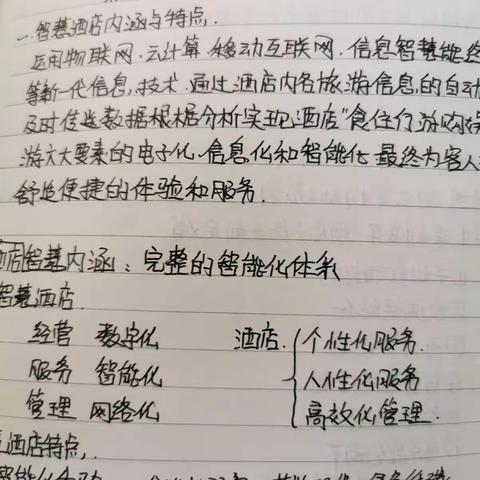 一.智慧酒店内涵与特点.
运用物联网.云计算.移动互联网.信息智慧能终
等新一代信息.技术.通过酒店内各旅游信息.的自动
及时传送数据根据分析实现酒店"食住行游购娱
游六大要素的电子化.信息化和智能化.最终为客人
舒适便捷的体验和服务.
酒店智慧内涵：完整的智能化体系
智慧酒店.
经营 数字化 酒店. 个性化服务.
服务 智能化 人性化服务
管理 网络化 高效化管理.
酒店特点.